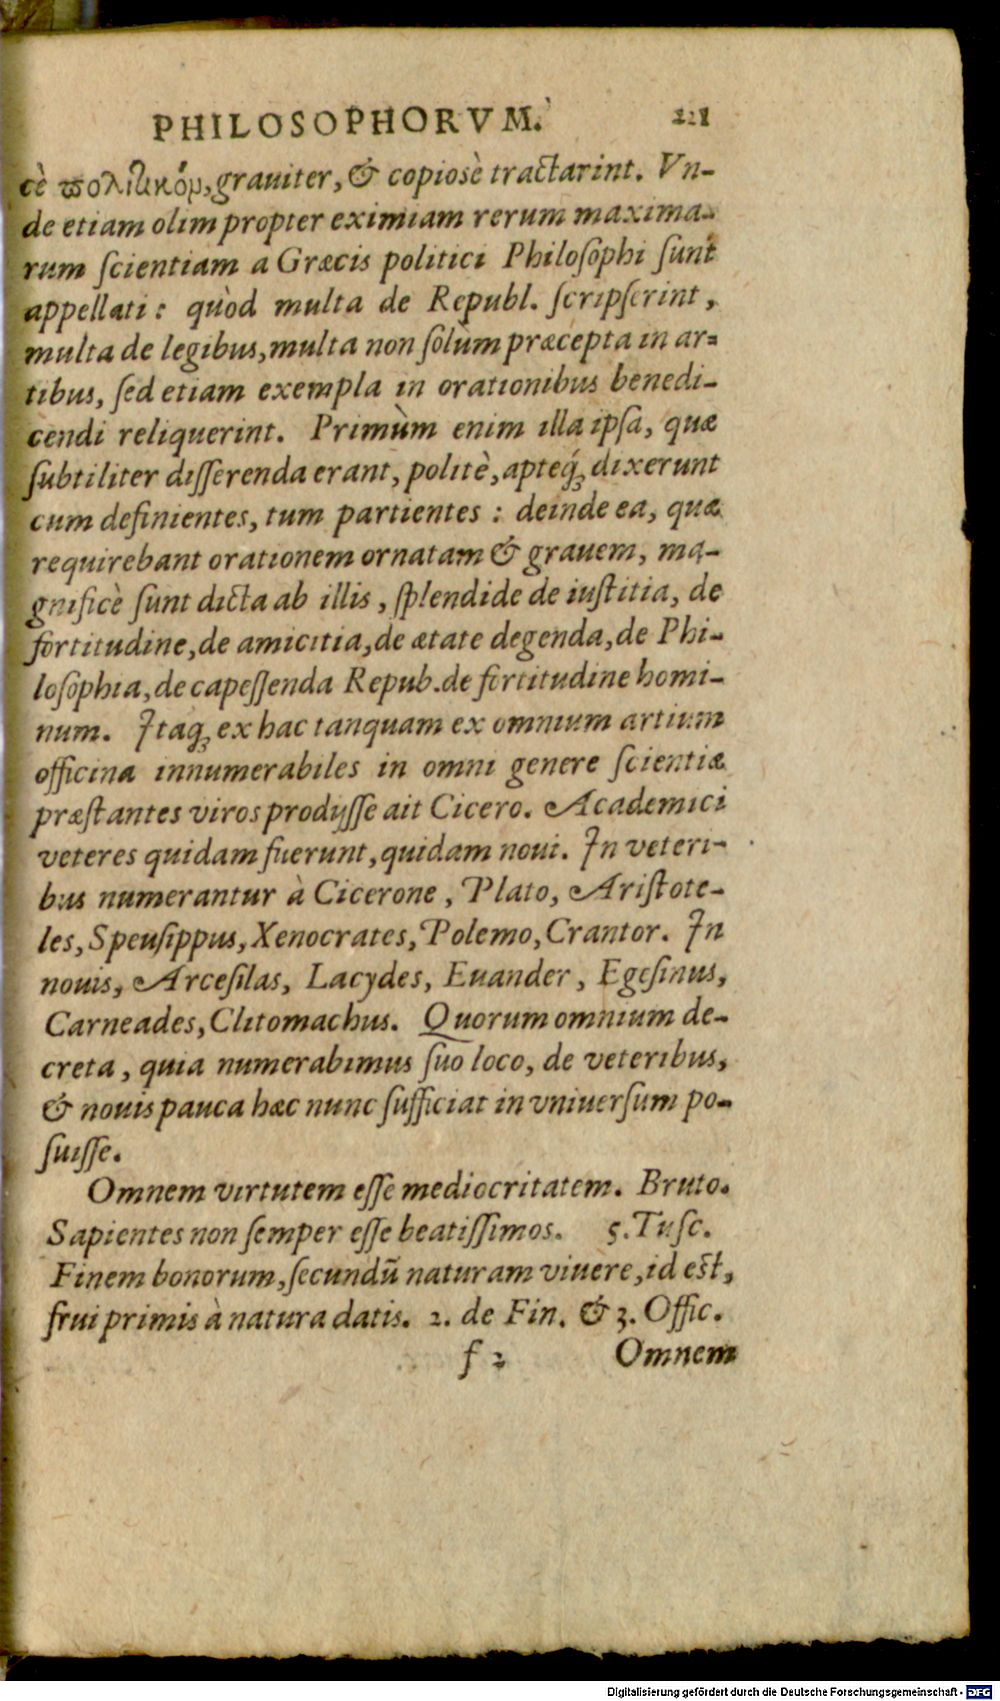 PHILOSOPHORVM. 221
cè πολιτικόμ, grauiter, & copiosè tractarint. Vn-
de etiam olim propter eximiam rerum maxima-
rum ſcientiam a Græcis politici Philoſophi ſunt
appellati: quòd multa de Republ. ſcripſerint,
multa de legibus, multa non ſolùm præcepta in ar-
tibus, ſed etiam exempla in orationibus benedi-
cendi reliquerint. Primùm enim illa ipſa, quæ
ſubtiliter diſſerenda erant, politè, apteq́; dixerunt
cum definientes, tum partientes: deinde ea, quæ
requirebant orationem ornatam & grauem, ma-
gnificè ſunt dicta ab illis, ſplendide de iuſtitia, de
fortitudine, de amicitia, de ætate degenda, de Phi-
loſophia, de capeſſenda Repub. de fortitudine homi-
num. Itaq; ex hac tanquam ex omnium artium
officina innumerabiles in omni genere ſcientiæ
præſtantes viros prodijſſe ait Cicero. Academici
veteres quidam fuerunt, quidam noui. In veteri-
bus numerantur à Cicerone, Plato, Ariſtote-
les, Speuſippus, Xenocrates, Polemo, Crantor. In
nouis, Arceſilas, Lacydes, Euander, Egeſinus,
Carneades, Clitomachus. Quorum omnium de-
creta, quia numerabimus ſuo loco, de veteribus,
& nouis pauca hæc nunc ſufficiat in vniuerſum po-
ſuiſſe.
Omnem virtutem eſſe mediocritatem. Bruto.
Sapientes non ſemper eſſe beatiſſimos. 5. Tuſc.
Finem bonorum, ſecundū naturam viuere, id eſt,
frui primis à natura datis. 2. de Fin. & 3. Offic.
f 2 Omnem
Digitalisierung gefördert durch die Deutsche Forschungsgemeinschaft - DFG